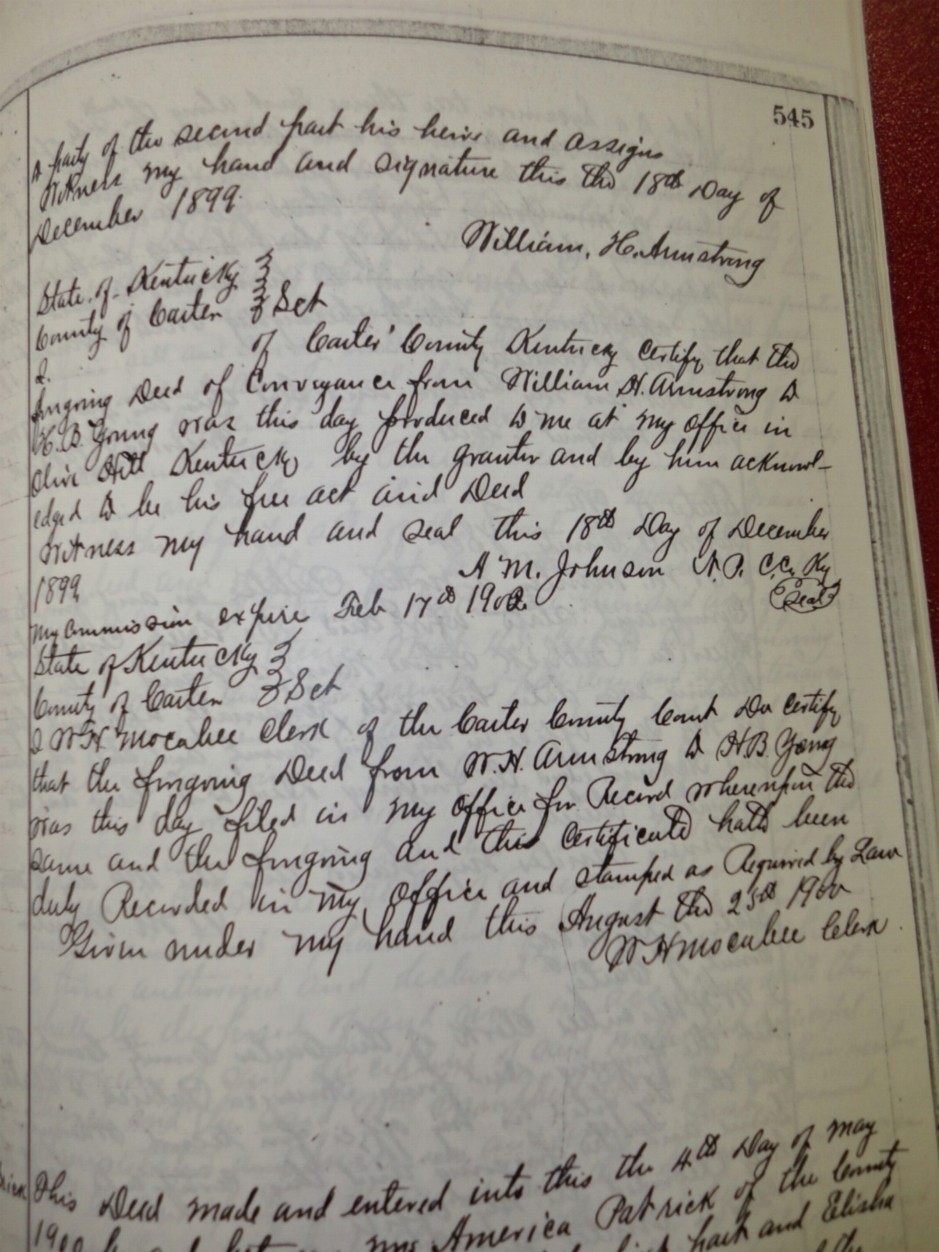 545
party of the second part his heirs and assigns
Witness my hand and signature this the 18th Day of
December 1899.
William, H. Armstrong
State of Kentucky }
County of Carter } Sct
I. of Carter County Kentucky Certify that the
forgoing Deed of Conveyance from William H. Armstrong to
H. B. Young was this day produced to me at my office in
Olive Hill Kentucky by the grantor and by him acknowl-
edged to be his free act and Deed
Witness my hand and seal this 18th Day of December
1899 A M. Johnson N. P. C. C. Ky
My Commission expire Feb 17th 1902 (Seal)
State of Kentucky }
County of Carter } Sct
I W. H. Mocabee Clerk of the Carter County Court Do certify
that the forgoing Deed from W. H. Armstrong to H. B. Yong
was this day filed in my office for Record whereupon the
same and the forgoing and this certificate hath been
duly Recorded in my office and stamped as Required by Law
Given under my hand this August the 1900
W H Mocabee Clerk
This Deed made and entered into this the 4th Day of May
America Patrick of the County
part and Elisha